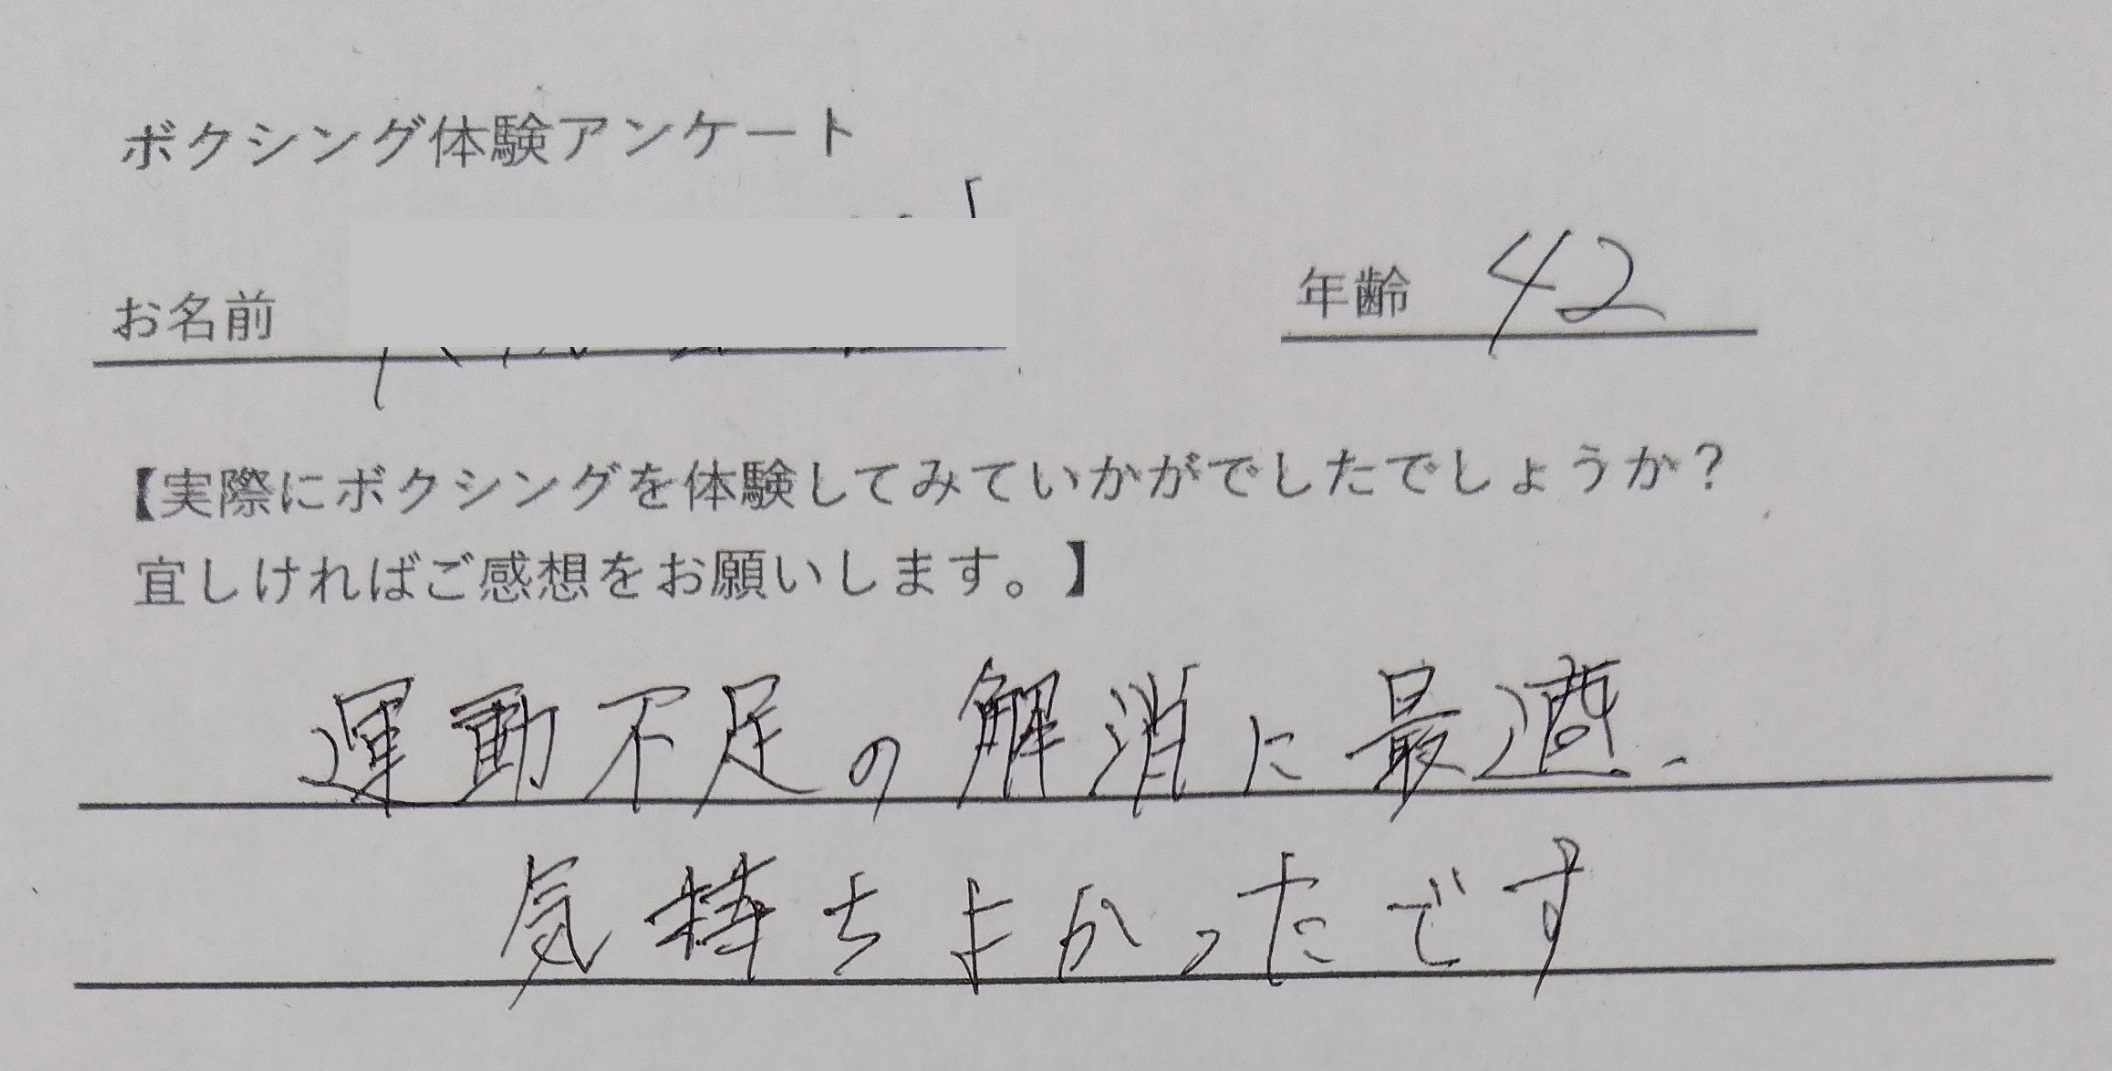 ボクシング体験アンケート
お名前 年齢 42
【実際にボクシングを体験してみていかがでしたでしょうか？
宜しければご感想をお願いします。】
運動不足の解消に最適、
気持ちよかったです